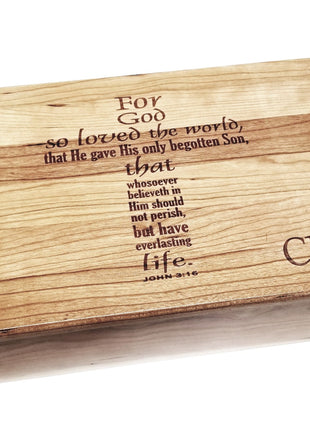 For
God
so loved the world,
that He gave His only begotten Son,
that
whosoever
believeth in
Him should
not perish,
but have
everlasting
life.
JOHN 3:16